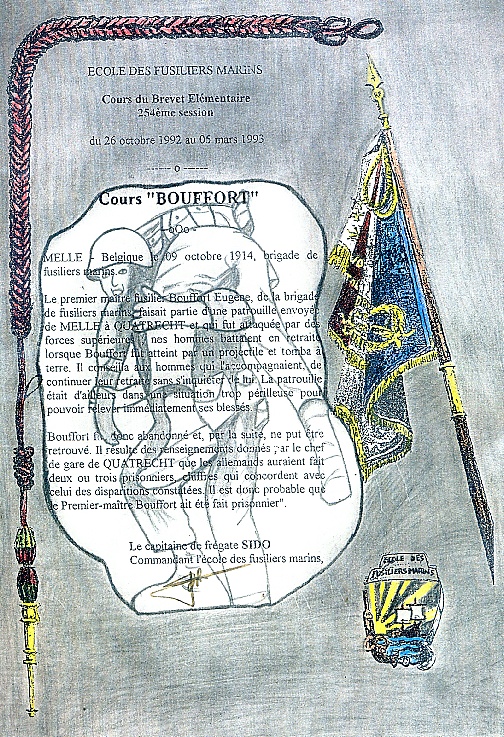 ECOLE DES FUSILIERS MARINS
Cours du Brevet Elémentaire
254ème session
du 26 octobre 1992 au 05 mars 1993
------- o -------
Cours "BOUFFORT"
oOo
MELLE Belgique le 09 octobre 1914, brigade de
fusiliers marins.
Le premier maître fusilier Bouffort Eugène, de la brigade
de fusiliers marins, faisait partie d'une patrouille envoyée
de MELLE à QUATRECHT et qui fut attaquée par des
forces supérieures nos hommes battaient en retraite
lorsque Bouffort fut atteint par un projectile et tomba à
terre. Il conseilla aux hommes qui l'accompagnaient, de
continuer leur retraite sans s'inquiéter de lui. La patrouille
était d'ailleurs dans une situation trop périlleuse pour
pouvoir relever immédiatement ses blessés
Bouffort fut donc abandonné et, par la suite, ne put être
retrouvé. Il résulte des renseignements donnés par le chef
de gare de QUATRECHT que les allemands auraient fait
deux ou trois prisonniers, chiffres qui concordent avec
celui des disparitions constatées. Il est donc probable que
le Premier-maître Bouffort ait été fait prisonnier".
Le capitaine de frégate SIDO
Commandant l'école des fusiliers marins,
ECOLE DES
FUSILIERS MARINS